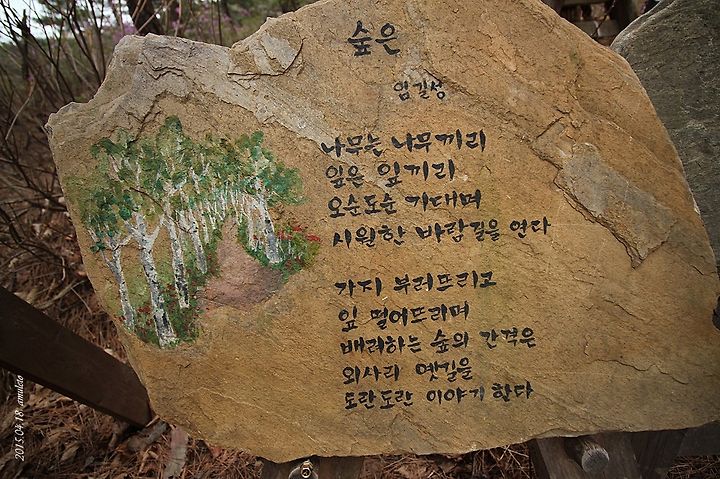 숲은
임길성
나무는 나무끼리
잎은 잎끼리
오순도순 기대며
시원한 바람길을 연다
가지 부러뜨리고
잎 떨어뜨리며
배려하는 숲의 간격은
외사리 옛길을
도란도란 이야기 한다
2015.04.18 amuleto